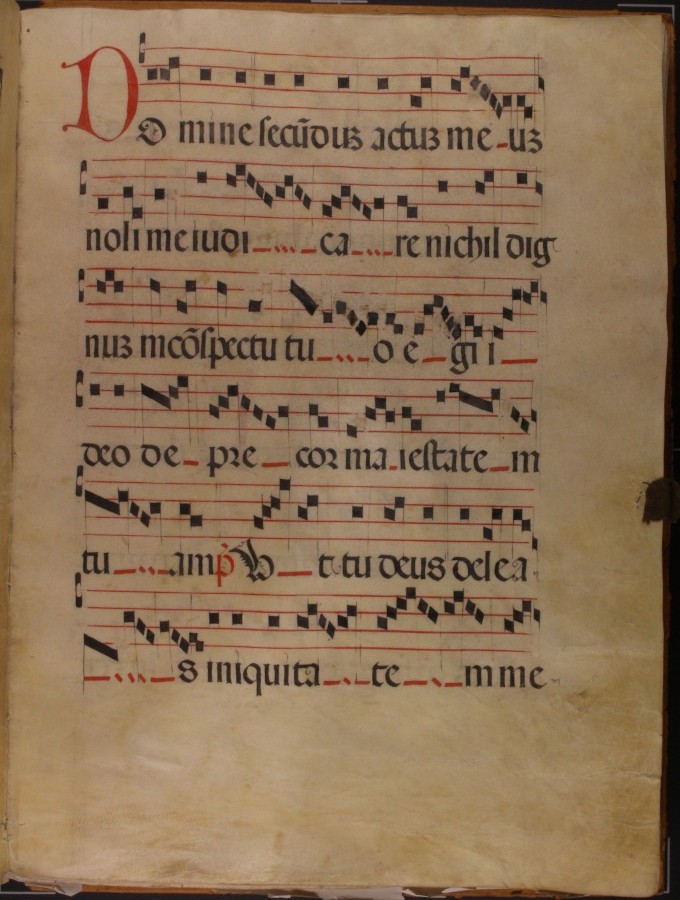 DO mine secūduʒ actuʒ me-uʒ
noli me iudi_..._ca_..._re nichil dig
nuʒ in cōspectu tu_..._o e_gi i_
deo de_pre_cor ma.iestate_in
tu_..._am p̄ Vt_t.tu deus delea
_..._s iniquita_.._te_.._m me